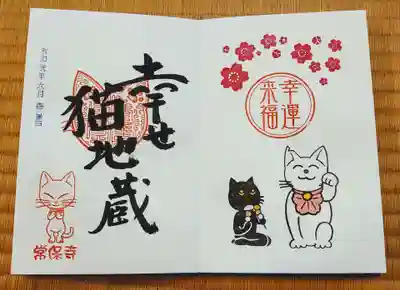 幸運
来福
幸せ
猫地蔵
令和元年六月吉日
常保寺